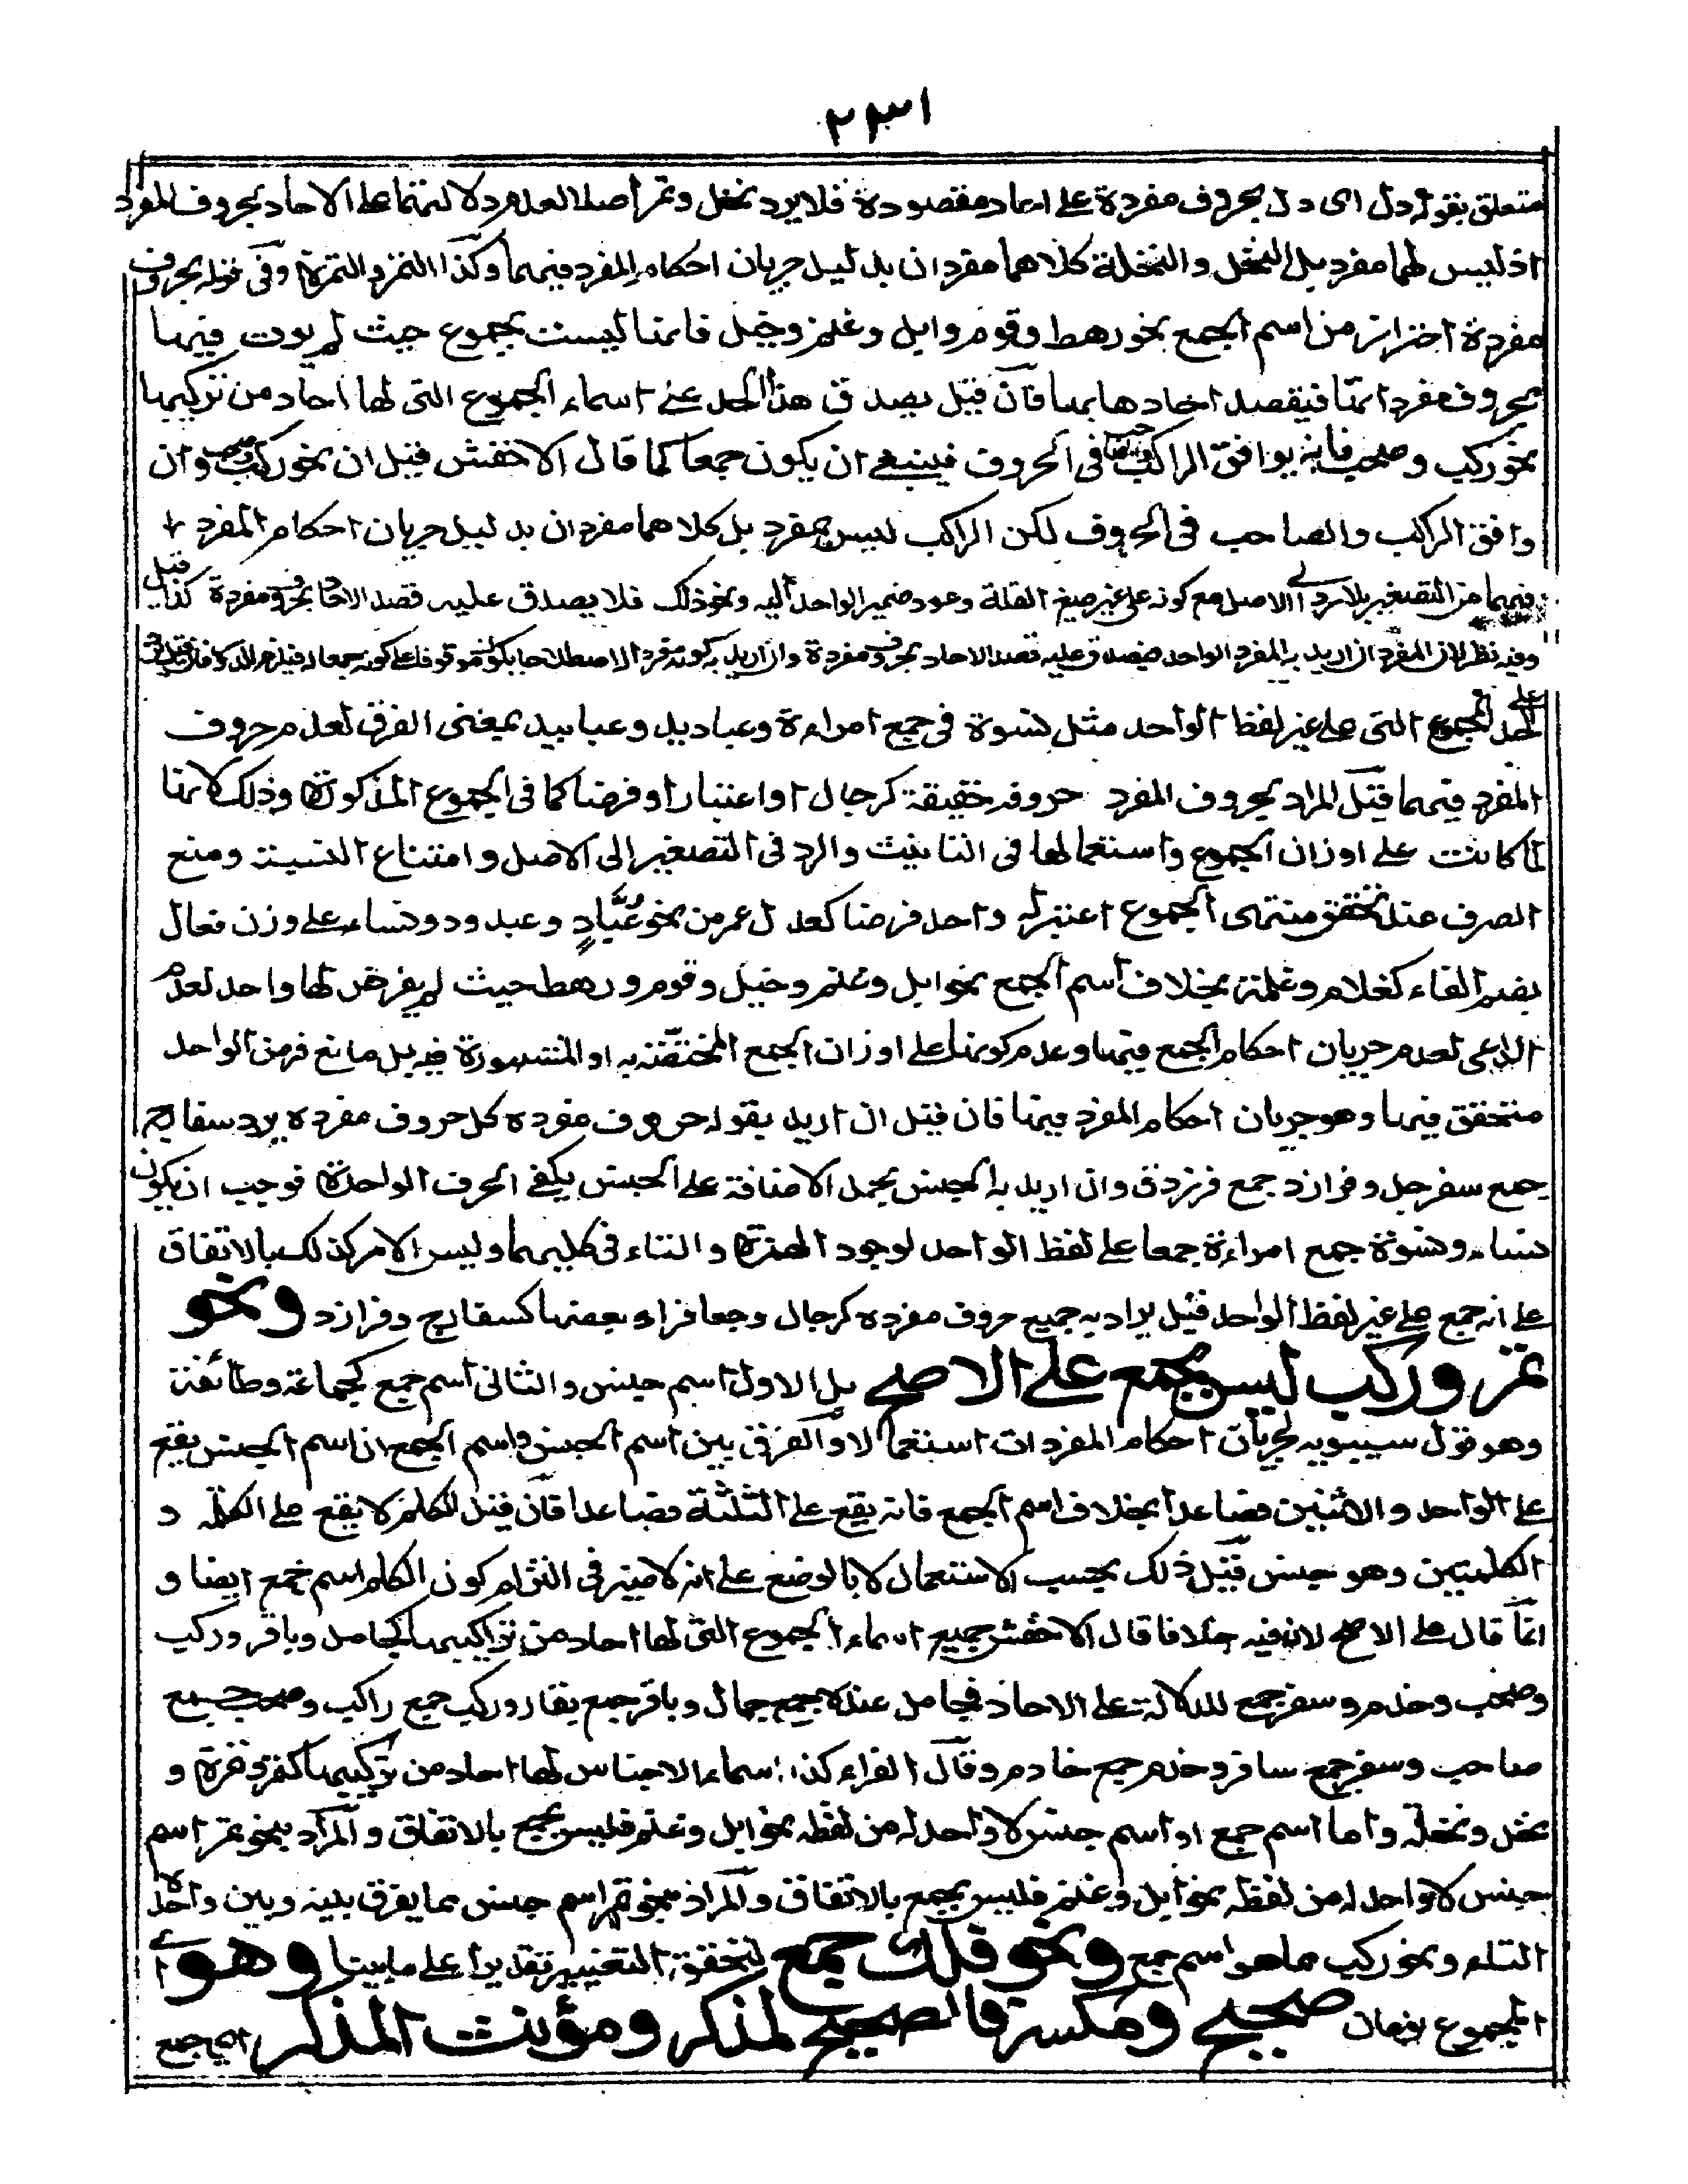 ٢٣١
متعلق بقوله دل اى دل بحروف مفردة على احاد مقصودة فلا يرد نخل وتمر اصلا لعدم دلالتهما على الاحاد بحروف المفرد
اذ ليس لهما مفرد بل النخل والنخلة كلاهما مفردان بدليل جريان احكام المفرد فيهما وكذا التمر والتمرة وفى قوله بحروف
مفردة احتراز من اسم الجمع نحو رهط وقوم وابل وغنم وخيل فانها ليست بجموع حيث لم يوت فيها
بحروف مفرداتها فيقصد احادها بها فان قيل يصدق هذا الحد على اسماء الجموع التى لها احاد من تركيبها
نحو ركب وصحب فانه يوافق الراكب فى الحروف فينبغى ان يكون جمعا كما قال الاخفش قيل ان نحو ركب وصحب وان
وافق الراكب والصاحب فى الحروف لكن الراكب ليس بمفرد بل كلاهما مفردان بدليل جريان احكام المفرد
فيهما من التصغير بلا رد الى الاصل مع كونه على غير صيغ القلة وعود ضمير الواحد اليه ونحو ذلك فلا يصدق عليه قصد الاحاد بحروف مفردة كذا قيل
وفيه نظر لان المفرد ان اريد به المفرد الواحد فيصدق عليه قصد الاحاد بحروف مفردة وان اريد به كونه مفرد الاصطلاحا يكون موقوفا على كونه جمعا له فيلزم الدور
الحد الجموع التى على غير لفظ الواحد مثل نسوة فى جمع امراءة وعباديد وعبابيد بمعنى الفرق لعدم حروف
المفرد فيهما قيل المراد بحروف المفرد حروفه حقيقة كرجال او اعتبارا وفرضا كما فى الجموع المذكورة وذلك لانها
لما كانت على اوزان الجموع واستعمالها فى التانيث والرد فى التصغير الى الاصل وامتناع النسبة ومنع
الصرف عند تحقق منتهى الجموع اعتبر له واحد فرضا كعدل عمر من نحو عُبَّادٍ وعبدود ونساء على وزن فعال
بضم الفاء كغلام وغلمة بخلاف اسم الجمع نحو ابل وغنم وخيل وقوم ورهط حيث لم يفرض لها واحد لعدم
الداعى لعدم جريان احكام الجمع فيها وعدم كونها على اوزان الجمع المختصة به او المشهورة فيه بل مانع فرض الواحد
متحقق فيها وهو جريان احكام المفرد فيها فان قيل ان اريد بقوله حروف مفرده كل حروف مفرده يرد سفارج
جمع سفرجل وفرازد جمع فرزدق وان اريد به الجنس بحمل الاضافة على الجنس يكفى الحرف الواحدة فوجب ان يكون
نساء ونسوة جمع امراءة جمعا على لفظ الواحد لوجود الهمزة والتاء فى كليهما وليس الامر كذلك بالاتفاق
على انه جمع على غير لفظ الواحد قيل يراد به جميع حروف مفرده كرجال وجعافر او بعضها كسفارج وفرازد ونحو
تمر وركب ليس بجمع على الاصح بل الاول اسم جنس والثانى اسم جمع كجماعة وطائفة
وهو قول سيبويه لجريان احكام المفردات استعمالا والفرق بين اسم الجنس واسم الجمع ان اسم الجنس يقع
على الواحد والاثنين فصاعدا بخلاف اسم الجمع فانه يقع على الثلثة فصاعدا فان قيل الكلم لا يقع على الكلمة و
الكلمتين وهو جنس قيل ذلك بحسب الاستعمال لا بالوضع على انه لا ضير فى التزام كون الكلم اسم جمع ايضا و
انما قال على الاصح لان فيه خلافا قال الاخفش جميع اسماء الجموع التى لها احاد من تراكيبها كجامل وباقر وركب
وصحب وخدم وسفر جمع للدلالة على الاحاد فجامل عنده جمع جمال وباقر جمع بقار وركب جمع راكب وصحب جمع
صاحب وسفر جمع سافر وخدم جمع خادم وقال الفراء كذا اسماء الاجناس لها احاد من تركيبها كتمر وتمرة و
نخل ونخلة واما اسم جمع او اسم جنس لا واحد له من لفظه نحو ابل وغنم فليس بجمع بالاتفاق والمراد بنحو تمر اسم
جنس لا واحد له من لفظه نحو ابل وغنم فليس بجمع بالاتفاق والمراد بنحو تمر اسم جنس مما يفرق بينه وبين واحده
التاء ونحو ركب مما هو اسم جمع ونحو فلك جمع لتحقق التغيير تقديرا على ما بينا وهو اى
المجموع نوعان صحيح ومكسر فالصحيح لمذكر ومؤنث المذكر اى جمع